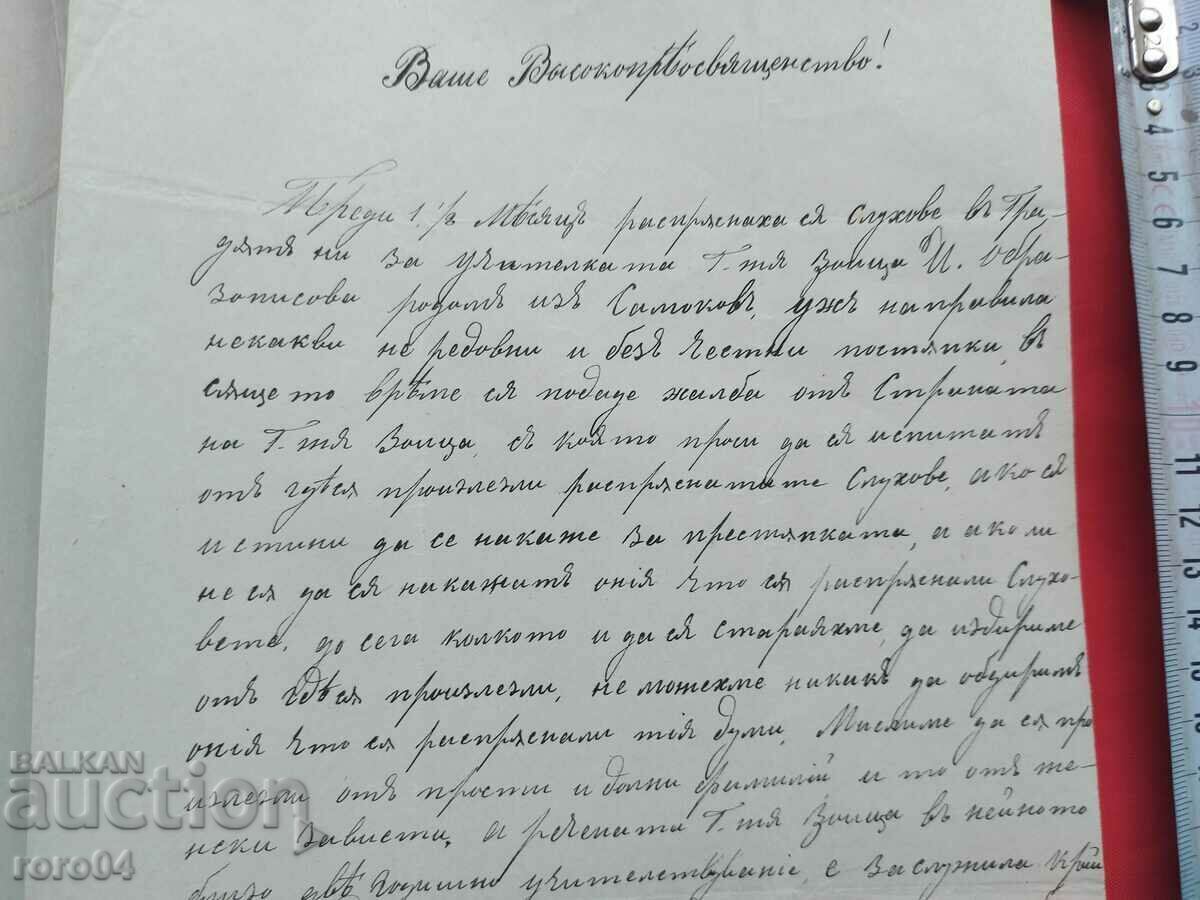 Ваше Высокопрѣосвященство!
Преди 1.½ мѣсяцъ распрѫснаха ся слухове въ Гра-
дътъ ни за учителката Г-жа Зоица И. Обра-
зописова родомъ изъ Самоковъ, ужъ направила
некакви не редовни и безъ честни постѫпки, въ
сѫщето врѣме ся подаде жалба отъ Страната
на Г-жа Зоица, съ която проси да ся испитатъ
отъ гдѣ ся произлезли распрѫснатите Слухове, ако ся
истини да се накаже за престѫпката, а ако ли
не ся да ся накажитъ онія что ся распрѫснали Слухо-
вете, до сега колкото и да ся стараяхме, да издириме
отъ гдѣ ся произлезли, не можехме никакъ да обдиримъ
онія что ся распрѫснали тія думи, Мислиме да ся про
излезли отъ прости и долни фамилій и то отъ же-
нски зависти, а речената Г-жа Зоица въ нейното
близо двѣ годишно учителствуваніе, е заслужила
BALKAN
auction
roro04
2
3
4
5
6
7
8
9
11
12
13
14
15
20